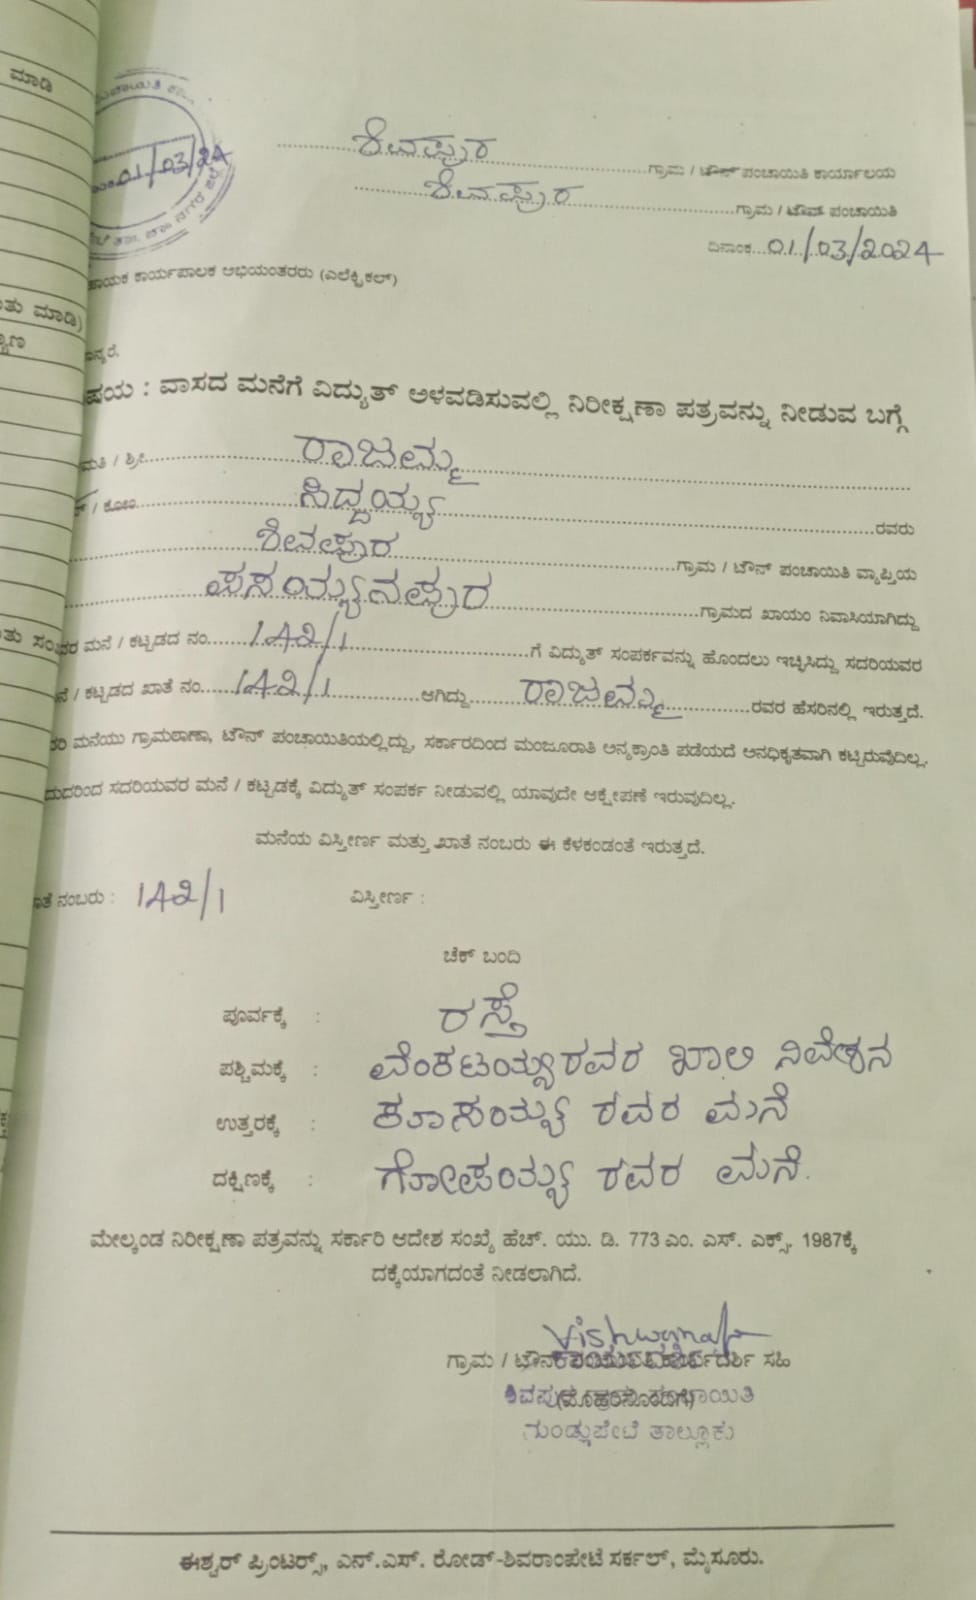 ಮಾಡಿ
01/03/24
ಶಿವಪುರ ಗ್ರಾಮ / ಟೌನ್ ಪಂಚಾಯಿತಿ ಕಾರ್ಯಾಲಯ
ಶಿವಪುರ ಗ್ರಾಮ / ಟೌನ್ ಪಂಚಾಯಿತಿ
ದಿನಾಂಕ 01/03/2024
ಕಾರ್ಯಪಾಲಕ ಅಭಿಯಂತರರು (ಎಲೆಕ್ಟ್ರಿಕಲ್)
ಮಾಡಿ)
ಷಯ : ವಾಸದ ಮನೆಗೆ ವಿದ್ಯುತ್ ಅಳವಡಿಸುವಲ್ಲಿ ನಿರೀಕ್ಷಣಾ ಪತ್ರವನ್ನು ನೀಡುವ ಬಗ್ಗೆ
ಮತಿ / ಶ್ರೀ ರಾಜಮ್ಮ
/ ಕೋಂ ಸಿದ್ದಯ್ಯ ರವರು
ಶಿವಪುರ ಗ್ರಾಮ / ಟೌನ್ ಪಂಚಾಯಿತಿ ವ್ಯಾಪ್ತಿಯ
ಪಸಯ್ಯನಪುರ ಗ್ರಾಮದ ಖಾಯಂ ನಿವಾಸಿಯಾಗಿದ್ದು
ಮನೆ / ಕಟ್ಟಡದ ನಂ. 142/1 ಗೆ ವಿದ್ಯುತ್ ಸಂಪರ್ಕವನ್ನು ಹೊಂದಲು ಇಚ್ಛಿಸಿದ್ದು ಸದರಿಯವರ
ನೆ / ಕಟ್ಟಡದ ಖಾತೆ ನಂ. 142/1 ಆಗಿದ್ದು ರಾಜಮ್ಮ ರವರ ಹೆಸರಿನಲ್ಲಿ ಇರುತ್ತದೆ.
ರಿ ಮನೆಯು ಗ್ರಾಮಠಾಣಾ, ಟೌನ್ ಪಂಚಾಯಿತಿಯಲ್ಲಿದ್ದು, ಸರ್ಕಾರದಿಂದ ಮಂಜೂರಾತಿ ಅನ್ಯಕ್ರಾಂತಿ ಪಡೆಯದೆ ಅನಧಿಕೃತವಾಗಿ ಕಟ್ಟಿರುವುದಿಲ್ಲ.
ದುದರಿಂದ ಸದರಿಯವರ ಮನೆ / ಕಟ್ಟಡಕ್ಕೆ ವಿದ್ಯುತ್ ಸಂಪರ್ಕ ನೀಡುವಲ್ಲಿ ಯಾವುದೇ ಆಕ್ಷೇಪಣೆ ಇರುವುದಿಲ್ಲ.
ಮನೆಯ ವಿಸ್ತೀರ್ಣ ಮತ್ತು ಖಾತೆ ನಂಬರು ಈ ಕೆಳಕಂಡಂತೆ ಇರುತ್ತದೆ.
ಾತೆ ನಂಬರು : 142/1 ವಿಸ್ತೀರ್ಣ :
ಚೆಕ್ ಬಂದಿ
ಪೂರ್ವಕ್ಕೆ : ರಸ್ತೆ
ಪಶ್ಚಿಮಕ್ಕೆ : ವೆಂಕಟಯ್ಯರವರ ಖಾಲಿ ನಿವೇಶನ
ಉತ್ತರಕ್ಕೆ : ರವರ ಮನೆ
ದಕ್ಷಿಣಕ್ಕೆ : ಗೋಪಯ್ಯ ರವರ ಮನೆ.
ಮೇಲ್ಕಂಡ ನಿರೀಕ್ಷಣಾ ಪತ್ರವನ್ನು ಸರ್ಕಾರಿ ಆದೇಶ ಸಂಖ್ಯೆ ಹೆಚ್. ಯು. ಡಿ. 773 ಎಂ. ಎಸ್. ಎಕ್ಸ್. 1987ಕ್ಕೆ
ದಕ್ಕೆಯಾಗದಂತೆ ನೀಡಲಾಗಿದೆ.
Vishwanath
ಗ್ರಾಮ / ಟೌನ್ ಪಂಚಾಯಿತಿ ಕಾರ್ಯದರ್ಶಿ ಸಹಿ
(ಮೊಹರಿನೊಂದಿಗೆ)
ಗುಂಡ್ಲುಪೇಟೆ ತಾಲ್ಲೂಕು
ಈಶ್ವರ್ ಪ್ರಿಂಟರ್ಸ್, ಎನ್.ಎಸ್. ರೋಡ್-ಶಿವರಾಂಪೇಟೆ ಸರ್ಕಲ್, ಮೈಸೂರು.